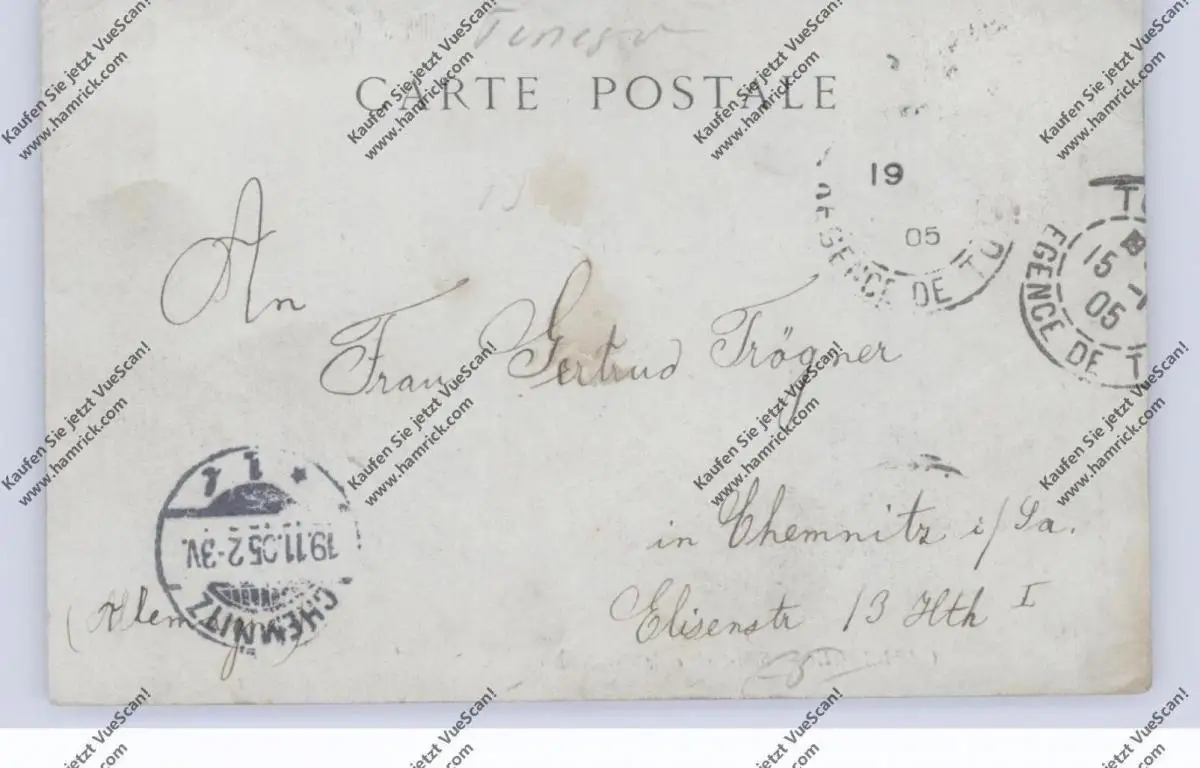 CARTE POSTALE
19
05
REGENCE DE TU
TU
15
05
EGENCE DE T
An
Frau Gertrud Trögner
in Chemnitz i/Sa.
Elisenstr 13 Hth I
CHEMNITZ
19.11.05 2-3V.
* 1 1
Kaufen Sie jetzt VueScan!
www.hamrick.com